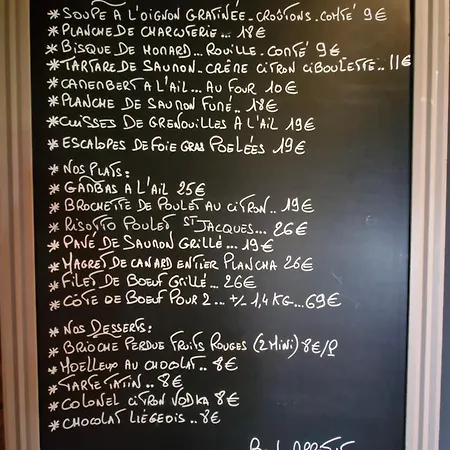 * SOUPE A L'OIGNON GRATINÉE - CROÛTONS - COMTÉ 9€
* PLANCHE DE CHARCUTERIE ... 18€
* BISQUE DE HOMARD... ROUILLE - COMTÉ 9€
* TARTARE DE SAUMON - CRÈME CITRON CIBOULETTE .. 11€
* CAMEMBERT A L'AIL ... AU FOUR 10€
* PLANCHE DE SAUMON FUMÉ .. 18€
* CUISSES DE GRENOUILLES À L'AIL 19€
* ESCALOPES DE FOIE GRAS POELÉES 19€
* NOS PLATS:
* GAMBAS A L'AIL 25€
* BROCHETTE DE POULET AU CITRON .. 19€
* RISOTTO POULET ST JACQUES ... 26€
* PAVÉ DE SAUMON GRILLÉ ... 19€
* MAGRET DE CANARD ENTIER PLANCHA 26€
* FILET DE BOEUF GRILLÉ ... 26€
* CÔTE DE BOEUF POUR 2 ... +/- 1,4KG ... 69€
* NOS DESSERTS:
* BRIOCHE PERDUE FRUITS ROUGES (2 MINI) 8€/P
* MOELLEUX AU CHOCOLAT .. 8€
* TARTE TATIN .. 8€
* COLONEL CITRON VODKA 8€
* CHOCOLAT LIÉGEOIS .. 8€